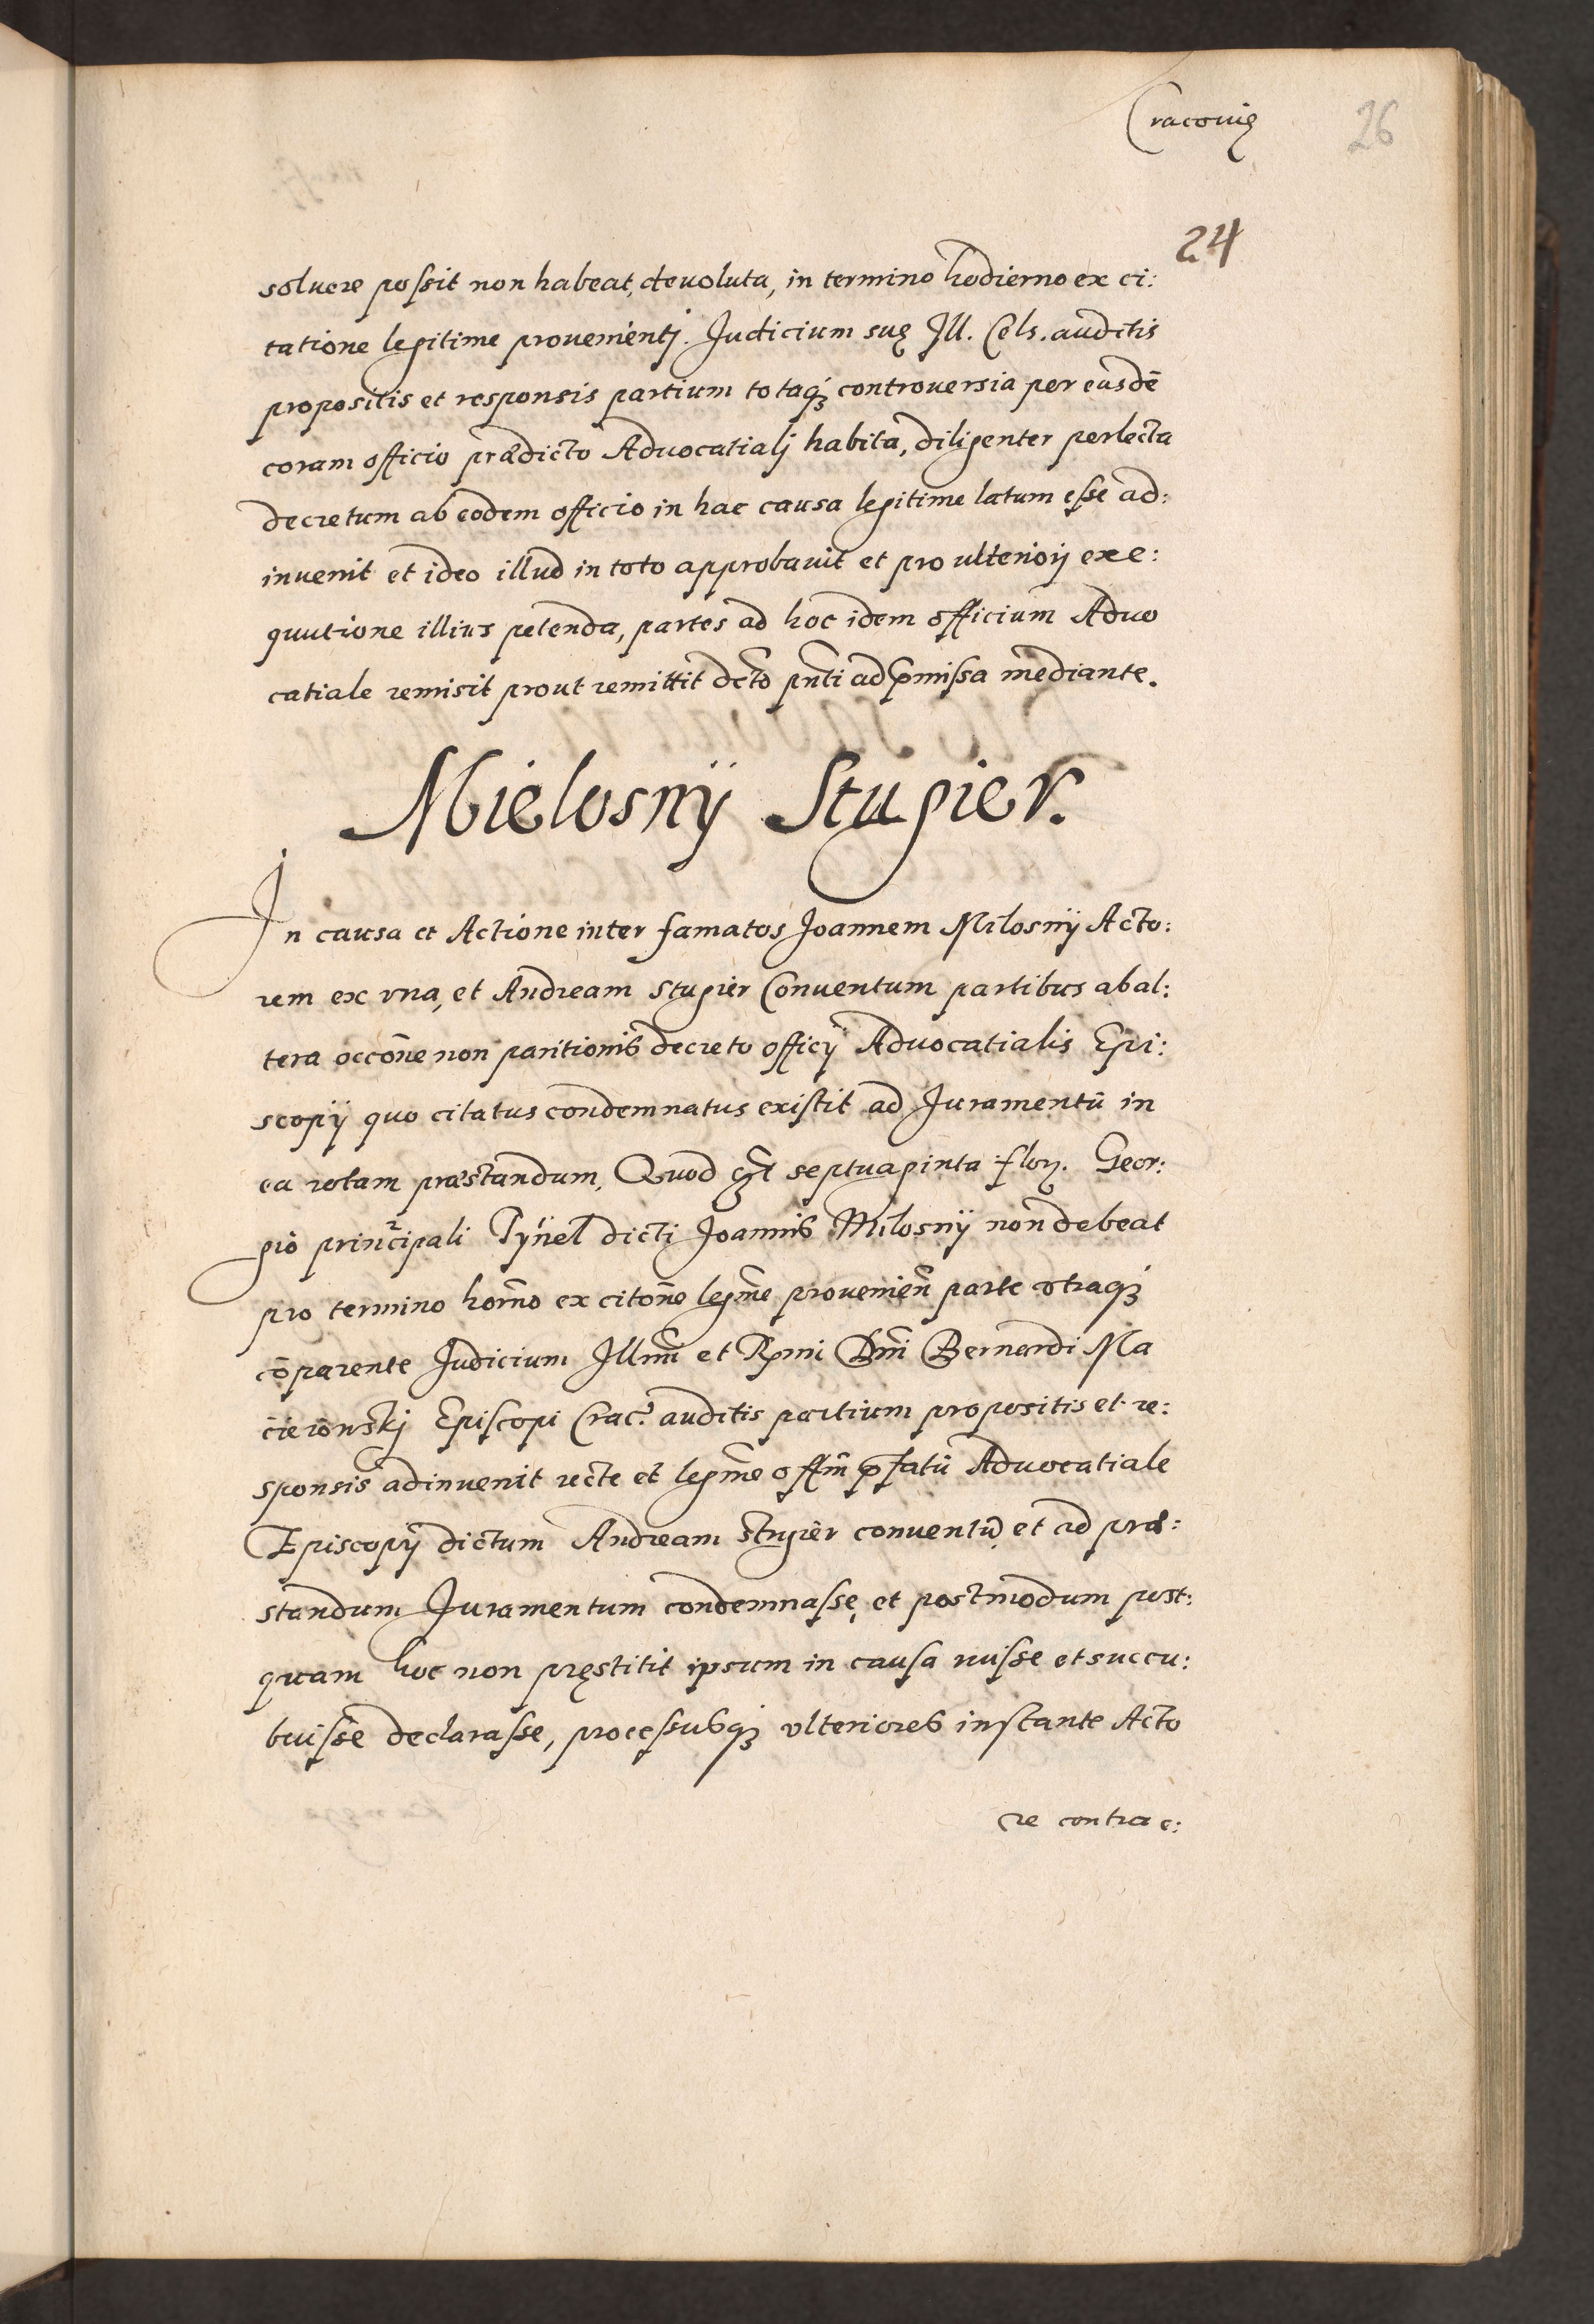 Cracouię
26
24
soluere possit non habeat, deuoluta, in termino hodierno ex ci:
tatione legitime prouenientj. Judicium suę Ill. Cels. auditis
propositis et responsis partium totaqꝫ controuersia per easdē
coram officio prædicto Aduocatialj habita, diligenter perlecta
decretum ab eodem officio in hac causa legitime latum esse ad:
inuenit et ideo illud in toto approbauit et pro ulteriorj exe:
quutione illius petenda, partes ad hoc idem officium Aduo
catiale remisit prout remittit dcto pnti ad pmissa mediante.
Mielosnÿ Stugier.
In causa et Actione inter famatos Joannem Milosnÿ Acto:
rem ex vna, et Andream Stugier Conuentum partibus ab al:
tera occōne non paritionis decreto officÿ Aduocatialis Epi:
scopÿ quo citatus condemnatus existit ad Juramentū in
ea rotam præstandum, Quod septuaginta flor. Geor:
gio principali Tynel dicti Joannis Milosnÿ non debeat
pro termino horno ex citone legme prouenien parte vtraqꝫ
cōparente Judicium Illmi et Rmi Dni Bernardi Ma
cieiowskj Episcopi Crac. auditis partium propositis et re:
sponsis adinuenit recte et legme offm pfatū Aduocatiale
Episcopÿ dictum Andream Stugier conuentū et ad præ:
standum Juramentum condemnasse, et postmodum post:
quam hoc non pręstitit ipsum in causa uisse et succu:
buisse declarasse, processusqꝫ vlteriores instante Acto
re contra c: